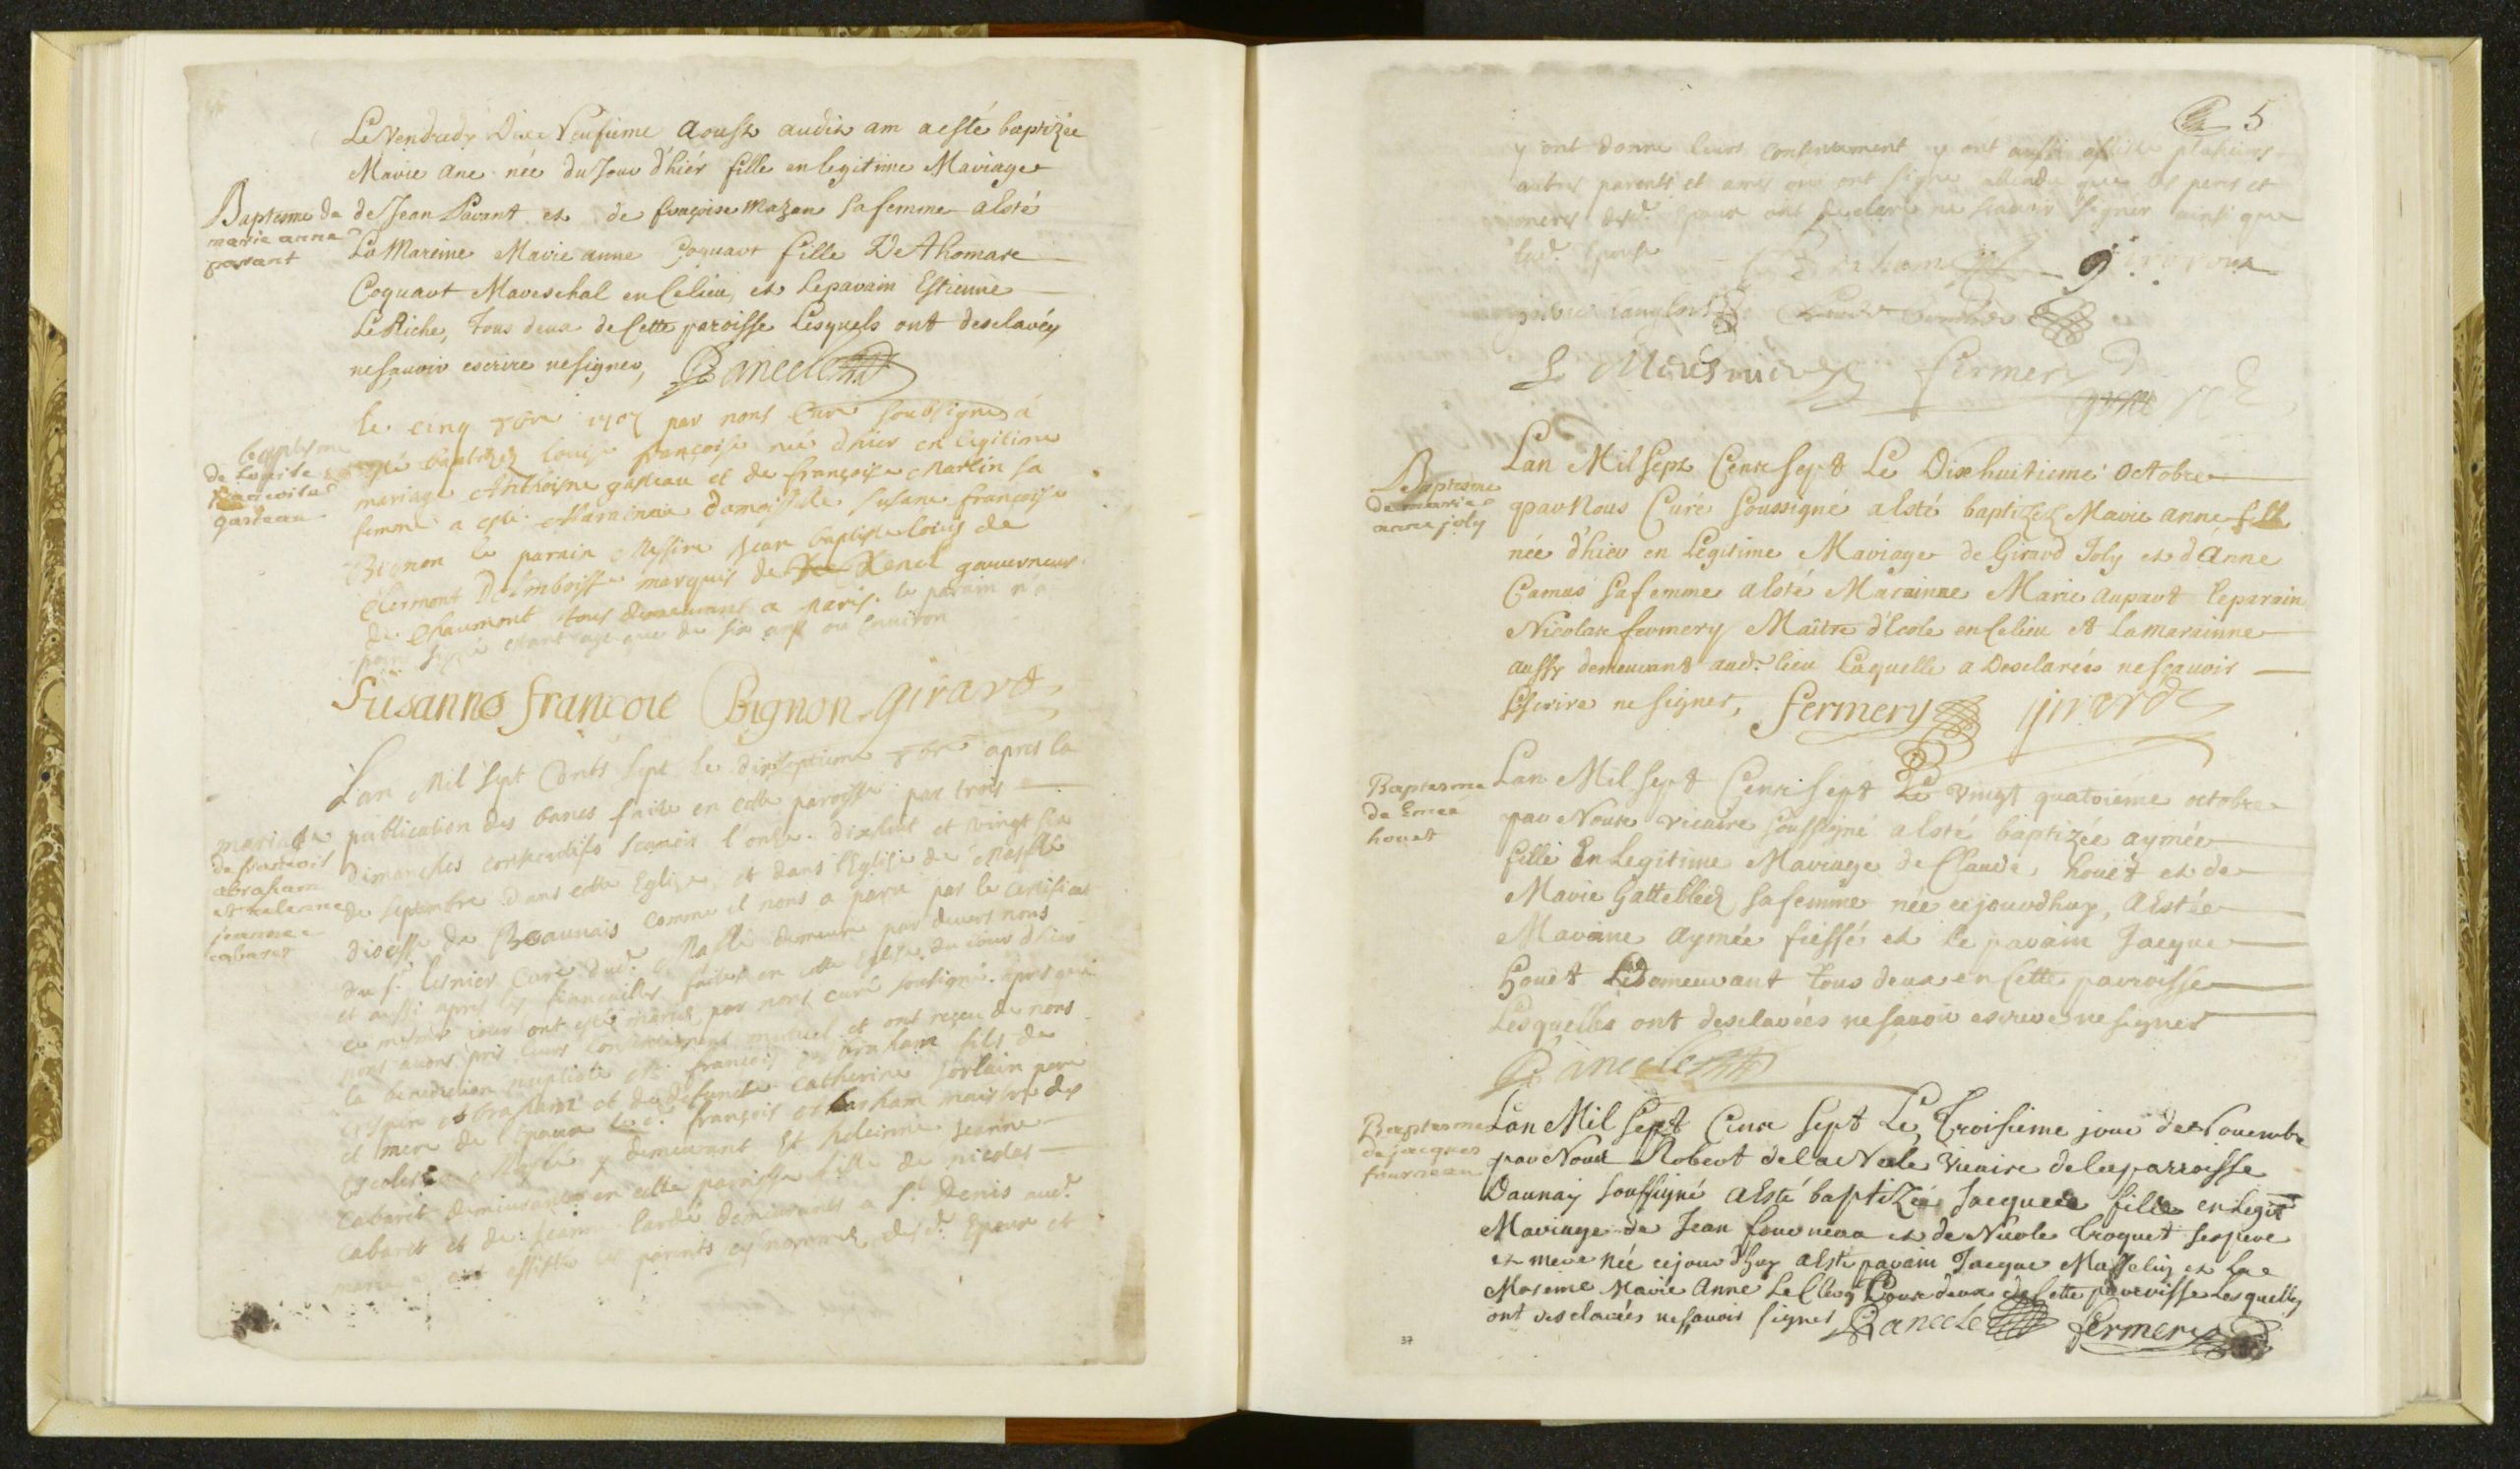 Le Vendredy Dixe Neufieme Aoust audit am a esté baptizée
Marie Ane née du Jour d'hiér fille en legitime Mariage
Baptesme de
marie anne
pavant
de Jean Pavant et de françoise mazan sa femme a lsté
La Mareine Marie anne Coquart fille De Thomare
Coquart Mareschal en Celieu, et Le parain Estienne
Le Riche, Tous deux de Cette paroisse Lesquels ont desclaréy
ne sauoir escrire ne signer, Bancel
baptesme
de Louise
francoise
gasteau
le cinq 7bre 1707 par nous Curé soubsigné a
esté baptizéz Louise françoise née d'hier en legitime
mariage d'Anthoisne gasteau et de françoise Martin sa
femme a esté Marainne damoiselle Susane françoise
Bignon le parain Messire Jean baptiste loüis de
Clermont D'Amboisse marquis de Renel gouuerneur
de Chaumont tous demeurant a paris. le parain n'a
point signé estant agé que de six ans ou Enuiron
Susanne françoie Bignon girard
mariage
de francois
abraham
et helenne
jeanne
cabaret
L'an Mil Sept Cents Sept le dixseptieme 8bre apres la
publication des bancs faite en cette paroisse par trois
dimanches consecutifs scauoir l'onze. dixhuit et vingt six
de septembre dans cette Eglize, et dans l'Eglise de Maflé
diocese de Beauuais comme il nous a paru par le certificat
du Sr. Curé dud. Maflé demeuré par deuers nous
et aussi apres les fiancailles faites en cette Eglise du iour d'hier
ce mesme iour ont esté mariés par nous curé soussigné. apres que
nous auons pris leurs consentement mutuel et ont reçeu de nous
la benediction nuptiale françois Abraham fils de
crespin Abraham et de deffuncte Catherine Lorlain pere
et mere de l'Epoux led. françois Abraham maistre des
Escoles Maflé y demeurant Et heleinne Jeanne
Cabaret demeurante en cette paroisse fille de nicolas
Cabaret et de Jeanne Lardé demeurants a St. Denis aud.
mariage ont assisté les parents cy nommés desd. Epoux et
5
y ont donné leurs consentement y ont aussi assisté plusieurs
autres parents et amis qui ont signé attendu que les peres et
meres desd. Epoux ont declaré ne scauoir signer ainsi que
lad. Epouse
fermery
Baptesme
de marie
anne joly
Lan Mil Sept Cent Sept Le Dixhuitieme Octobre
par Nous Curé Soussigné a lsté baptizéz Marie Anne fille
née d'hier en Legitime Mariage de Girard Joly et d'Anne
Camus sa femme a lsté Marainne Marie aupart Le parain
Nicolas fermery Maître d'Ecole en Celieu et La marainne
aussy demeurant aud. lieu Laquelle a Desclarées ne sçauoir
Escrire ne signer, fermery girard
Baptesme
de Emée
houet
Lan Mil Sept Cent Sept Le Vingt quatrième octobre
par Nous Vicaire soussigné a lsté baptizée aymée
fille En Legitime Mariage de Claude, houët et de
Marie Gattebled sa femme née cejourdhuy, a Estée
Mareine Aymée fiessé et le parain Jacque
houët demeurant tous deux en Cette parroisse
Lesquelles ont desclarées ne sauoir escrire ne signer
Bancel
Baptesme
de jacques
fourneau
Lan Mil Sept Cent Sept Le Troisieme jour de Nouembre
par Nous Robert de la Vicaire de la parroisse
Daunay soussigné a Esté baptizée Jacquee fille en Legit
Mariage de Jean fourneaa et de Nicole Croquet ses pere
et mere née cejourdhuy a lsté parain Jacque Masselin et La
Mareine Marie Anne Le Clerq Tous deux de Cette parroisse Lesquelles
ont desclarées ne sauoir signer Bancel fermery
37